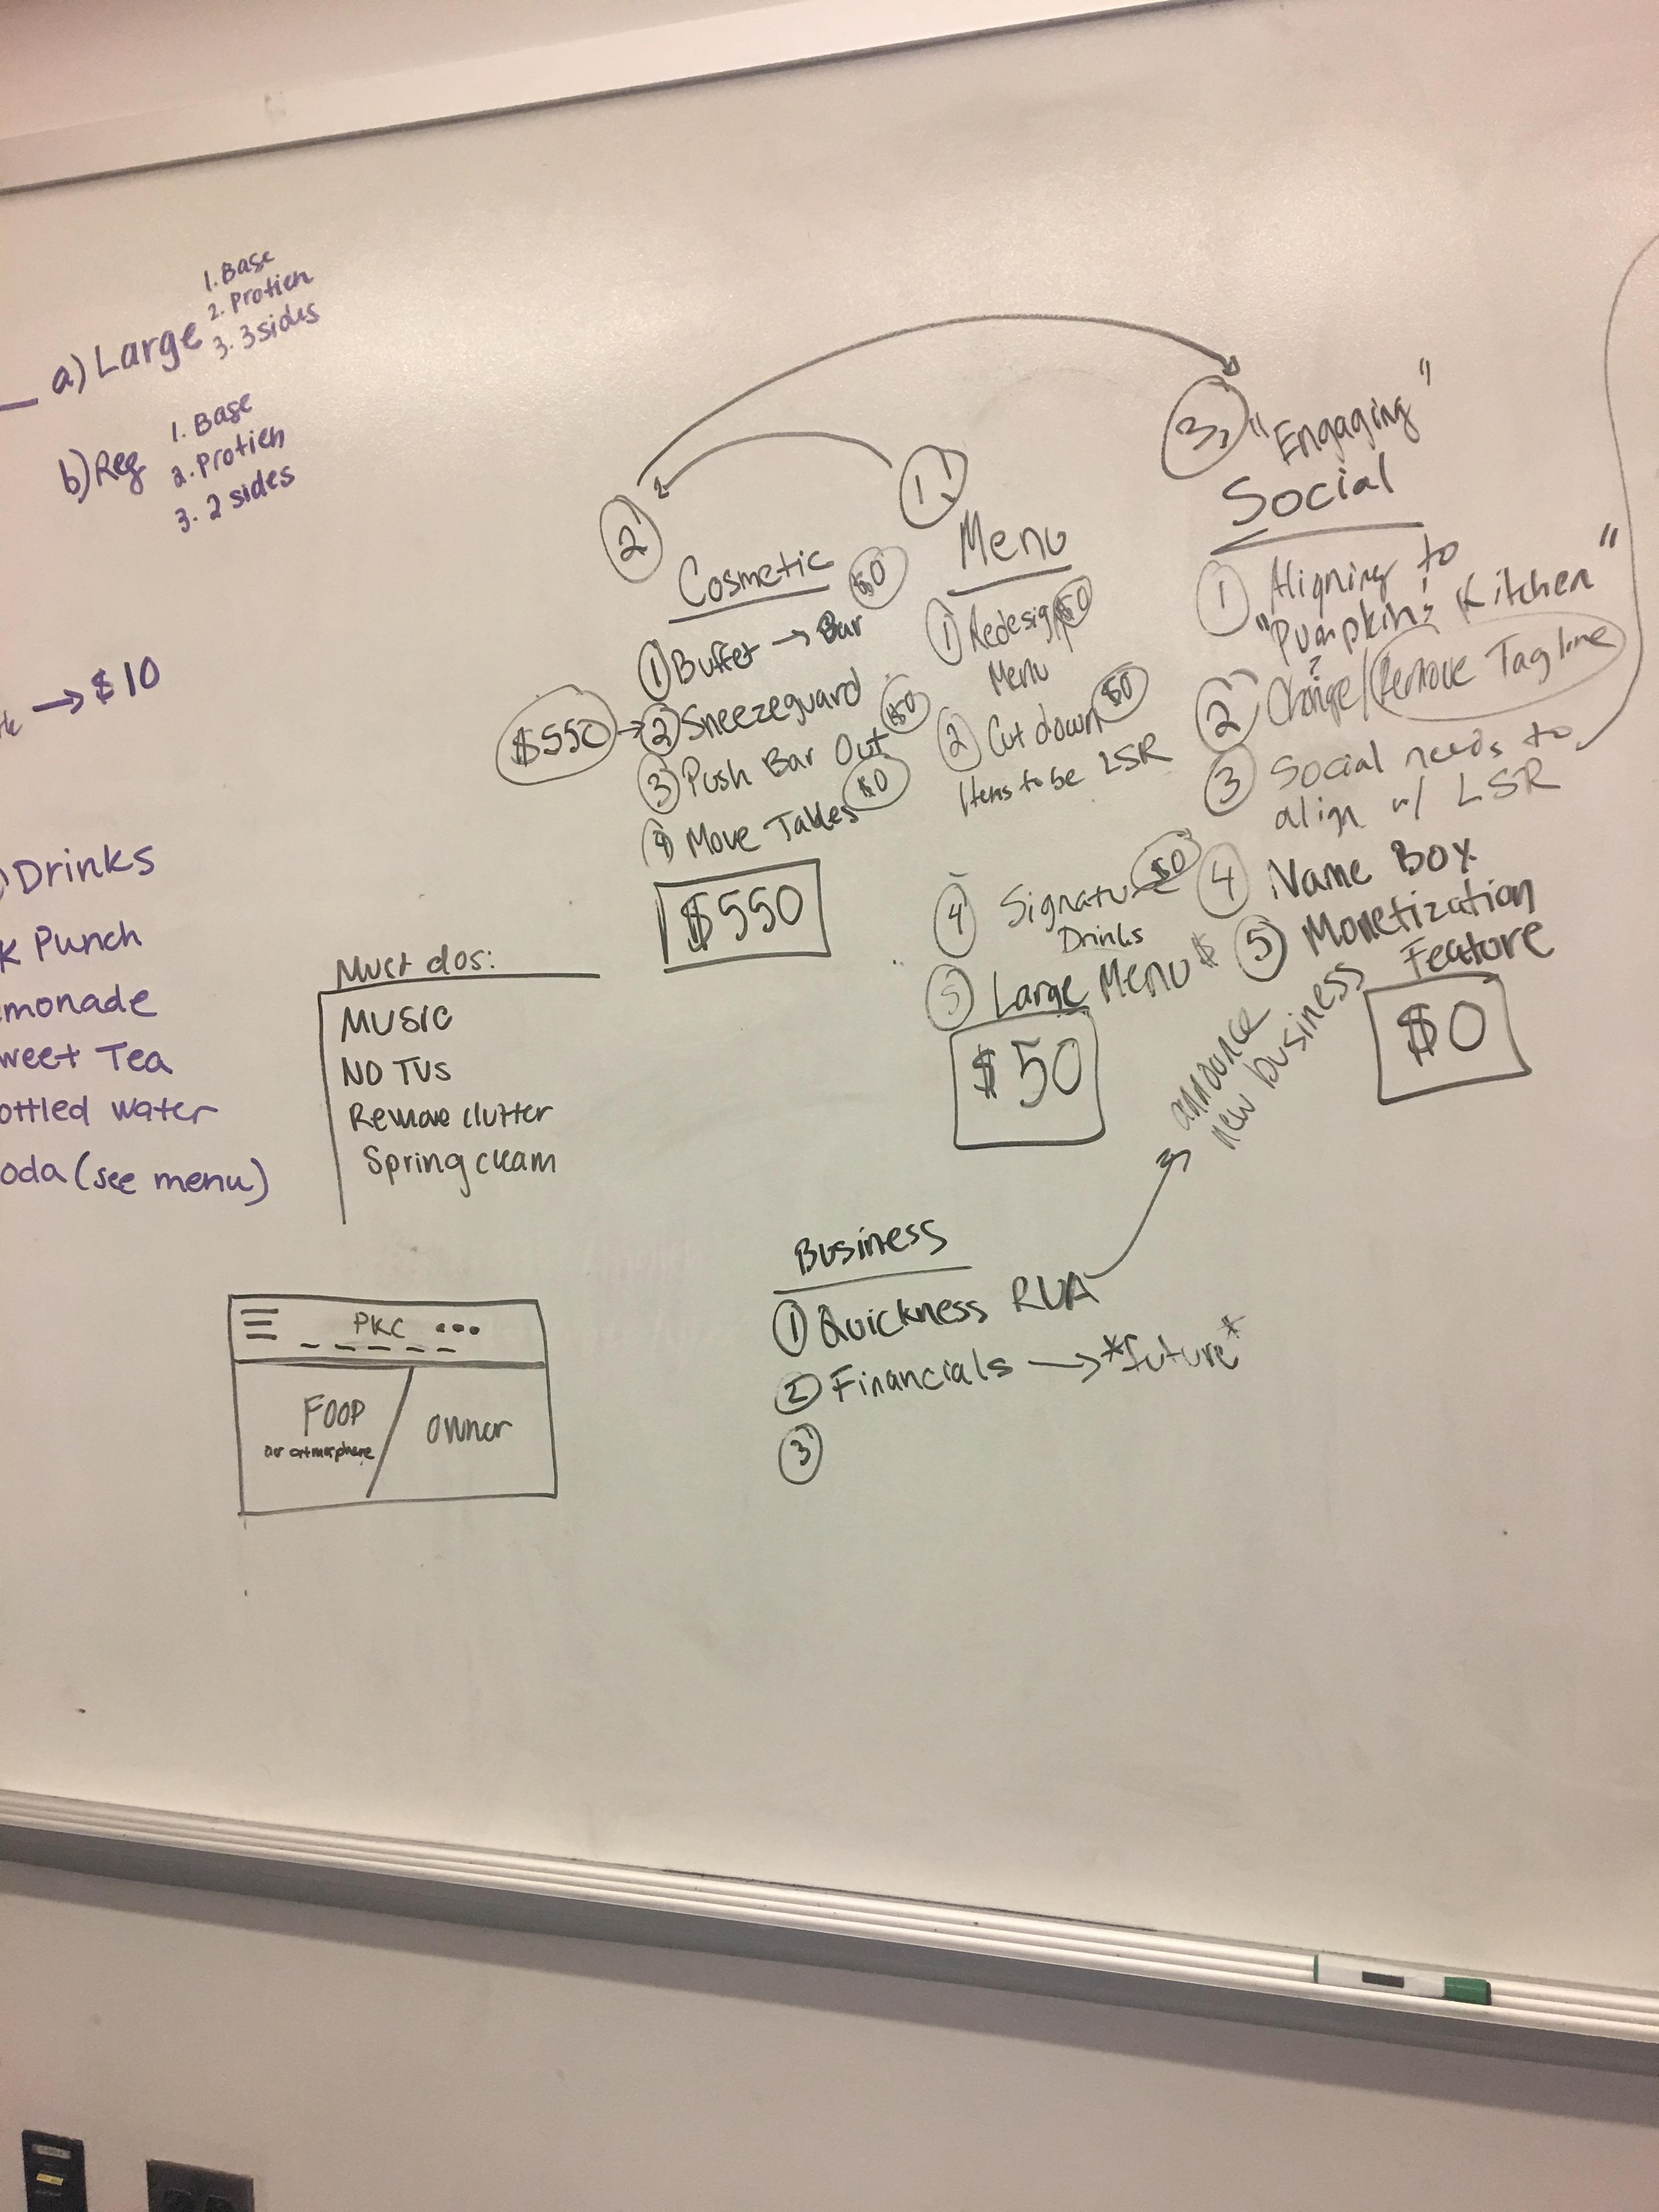 a) Large
1. Base
2. Protien
3. 3 sides
b) Reg
1. Base
2. Protien
3. 2 sides
→ $10
Drinks
k Punch
monade
weet Tea
ottled water
oda (see menu)
Must dos:
MUSIC
NO TVS
Remove clutter
Spring clean
PKC
FOOD
or atmosphere
owner
2
Cosmetic
1 Buffet → Bar $0
$550 → 2 Sneezeguard
3 Push Bar Out $0
4 Move Tables $0
$550
1
Menu
1 Redesign $0
Menu
2 Cut down $0
Items to be LSR
4 Signature $0
Drinks
5 Large Menu $
$50
3 "Engaging"
Social
1 Aligning to
"Pumpkin's Kitchen"
2 Change/Remove Tagline
3 Social needs to
align w/ LSR
4 Name Box
5 Monetization
Feature
$0
announce
new business
Business
1 Quickness RVA
2 Financials → *future*
3